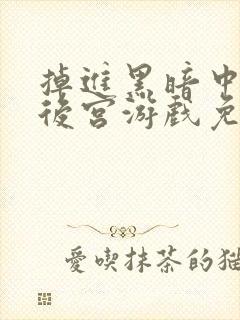 掉進黑暗中
後宮游戲免
愛喫抹茶的猫